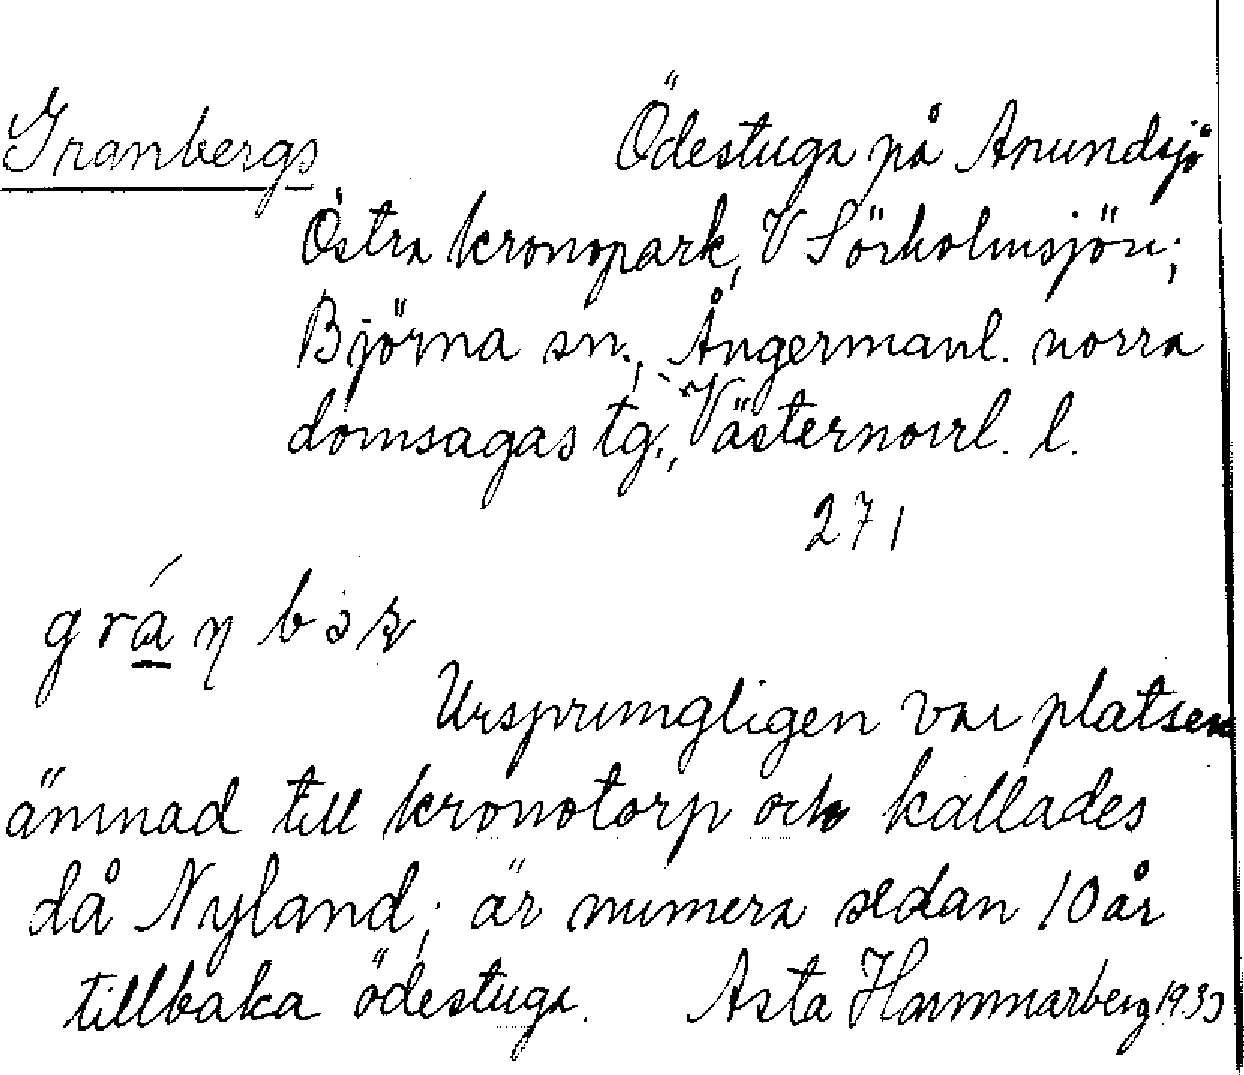 Granbergs Ödestuga på Anundsjö
Östra kronopark, V Sörholmsjön;
Björna sn., Ångermanl. norra
domsagas tg., Västernorrl. l.
271
Ursprungligen var platsen
ämnad till kronotorp och kallades
då Nyland; är numera sedan 10 år
tillbaka ödestuga. Asta Hammarberg